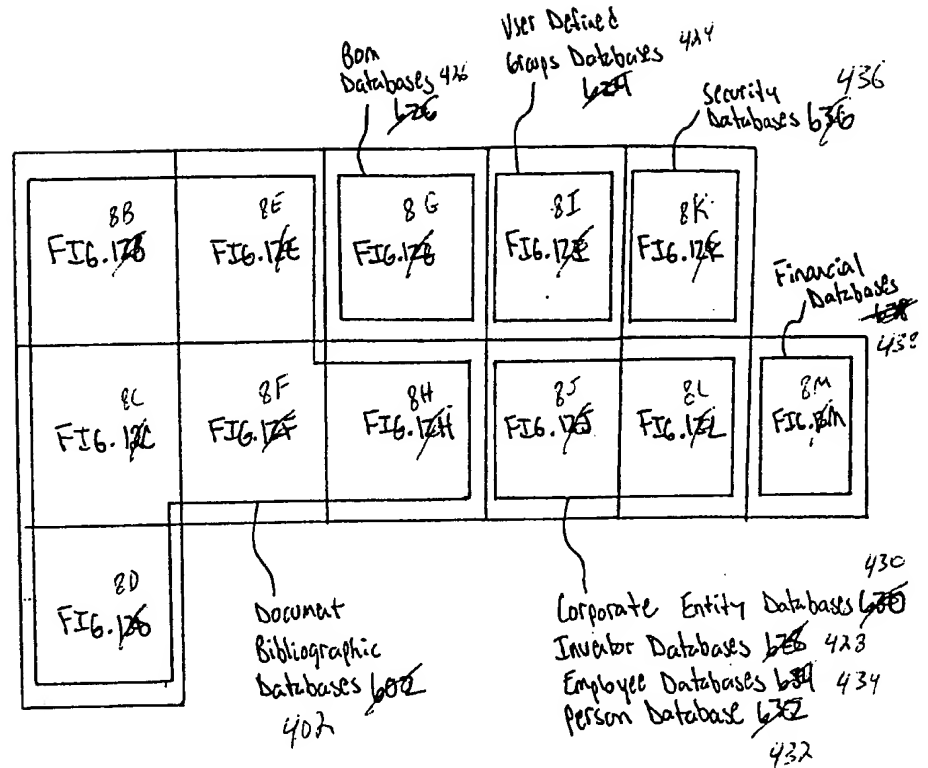 Bom
Databases 426
626
User Defined
Groups Databases 424
624
436
Security
Databases 636
8B
FIG.12B
8E
FIG.12E
8G
FIG.12G
8I
FIG.12I
8K
FIG.12K
Financial
Databases
638
438
8C
FIG.12C
8F
FIG.12F
8H
FIG.12H
8J
FIG.12J
8L
FIG.12L
8M
FIG.12M
8D
FIG.12D
Document
Bibliographic
Databases 602
402
430
Corporate Entity Databases 630
Inventor Databases 628 428
Employee Databases 634 434
Person Database 632
432